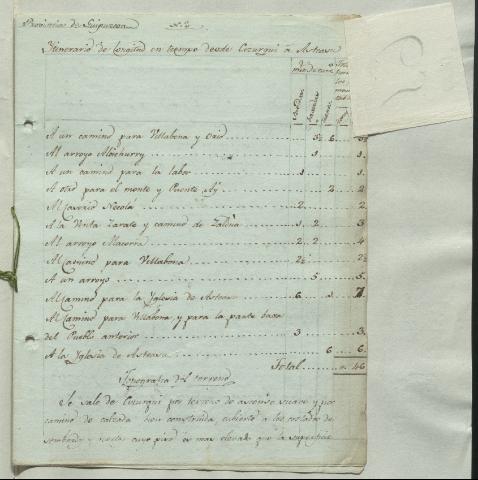 Provincia de Guipuzcoa Nº 2
Itinerario de Longitud en tiempo desde Cizurquil à Asteasu
A un camino para Villabona y Orio 5½ 6
Al arroyo 1 1
A un camino para la labor 1 1
A otro para el monte y Puente 2 2
Al Caserio Necola 2 2
A la Venta Zarate y camino de Zaldua 1 2 3
Al arroyo 2 2 4
Al Camino para Villabona 2½ 2½
A un arroyo 5 5
Al Camino para la Yglesia de Asteasu 6 1 7
Al Camino para Villabona y para la parte baxa
del Pueblo anterior 3 3
A la Yglesia de Asteasu 6 6
Total 46
Topografia del terreno
Se sale de Cizurquil por terreno de ascenso suave y por
camino de calzada bien construida, cubierto a los costados de
sembrados y cuyo piso es mas elevado que la superficie